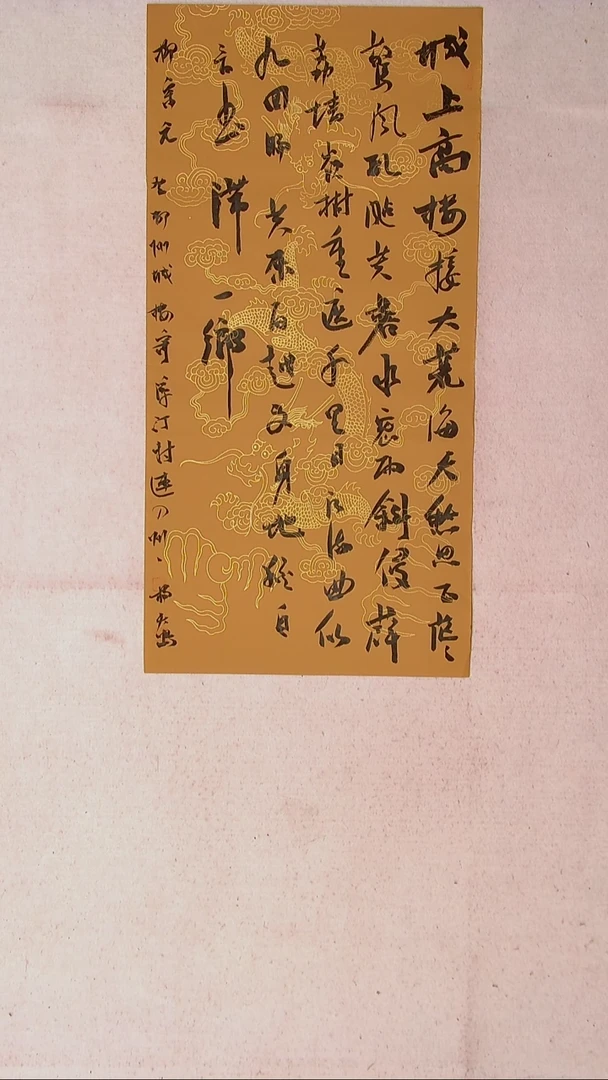 城上高楼接大荒海天愁思正茫〻
驚风乱飐芙蓉水密雨斜侵薜
荔墙嶺樹重遮千里目江流曲似
九回肠共来百越文身地猶自
音书滞一鄉
柳宗元 登柳州城楼寄漳汀封連四州